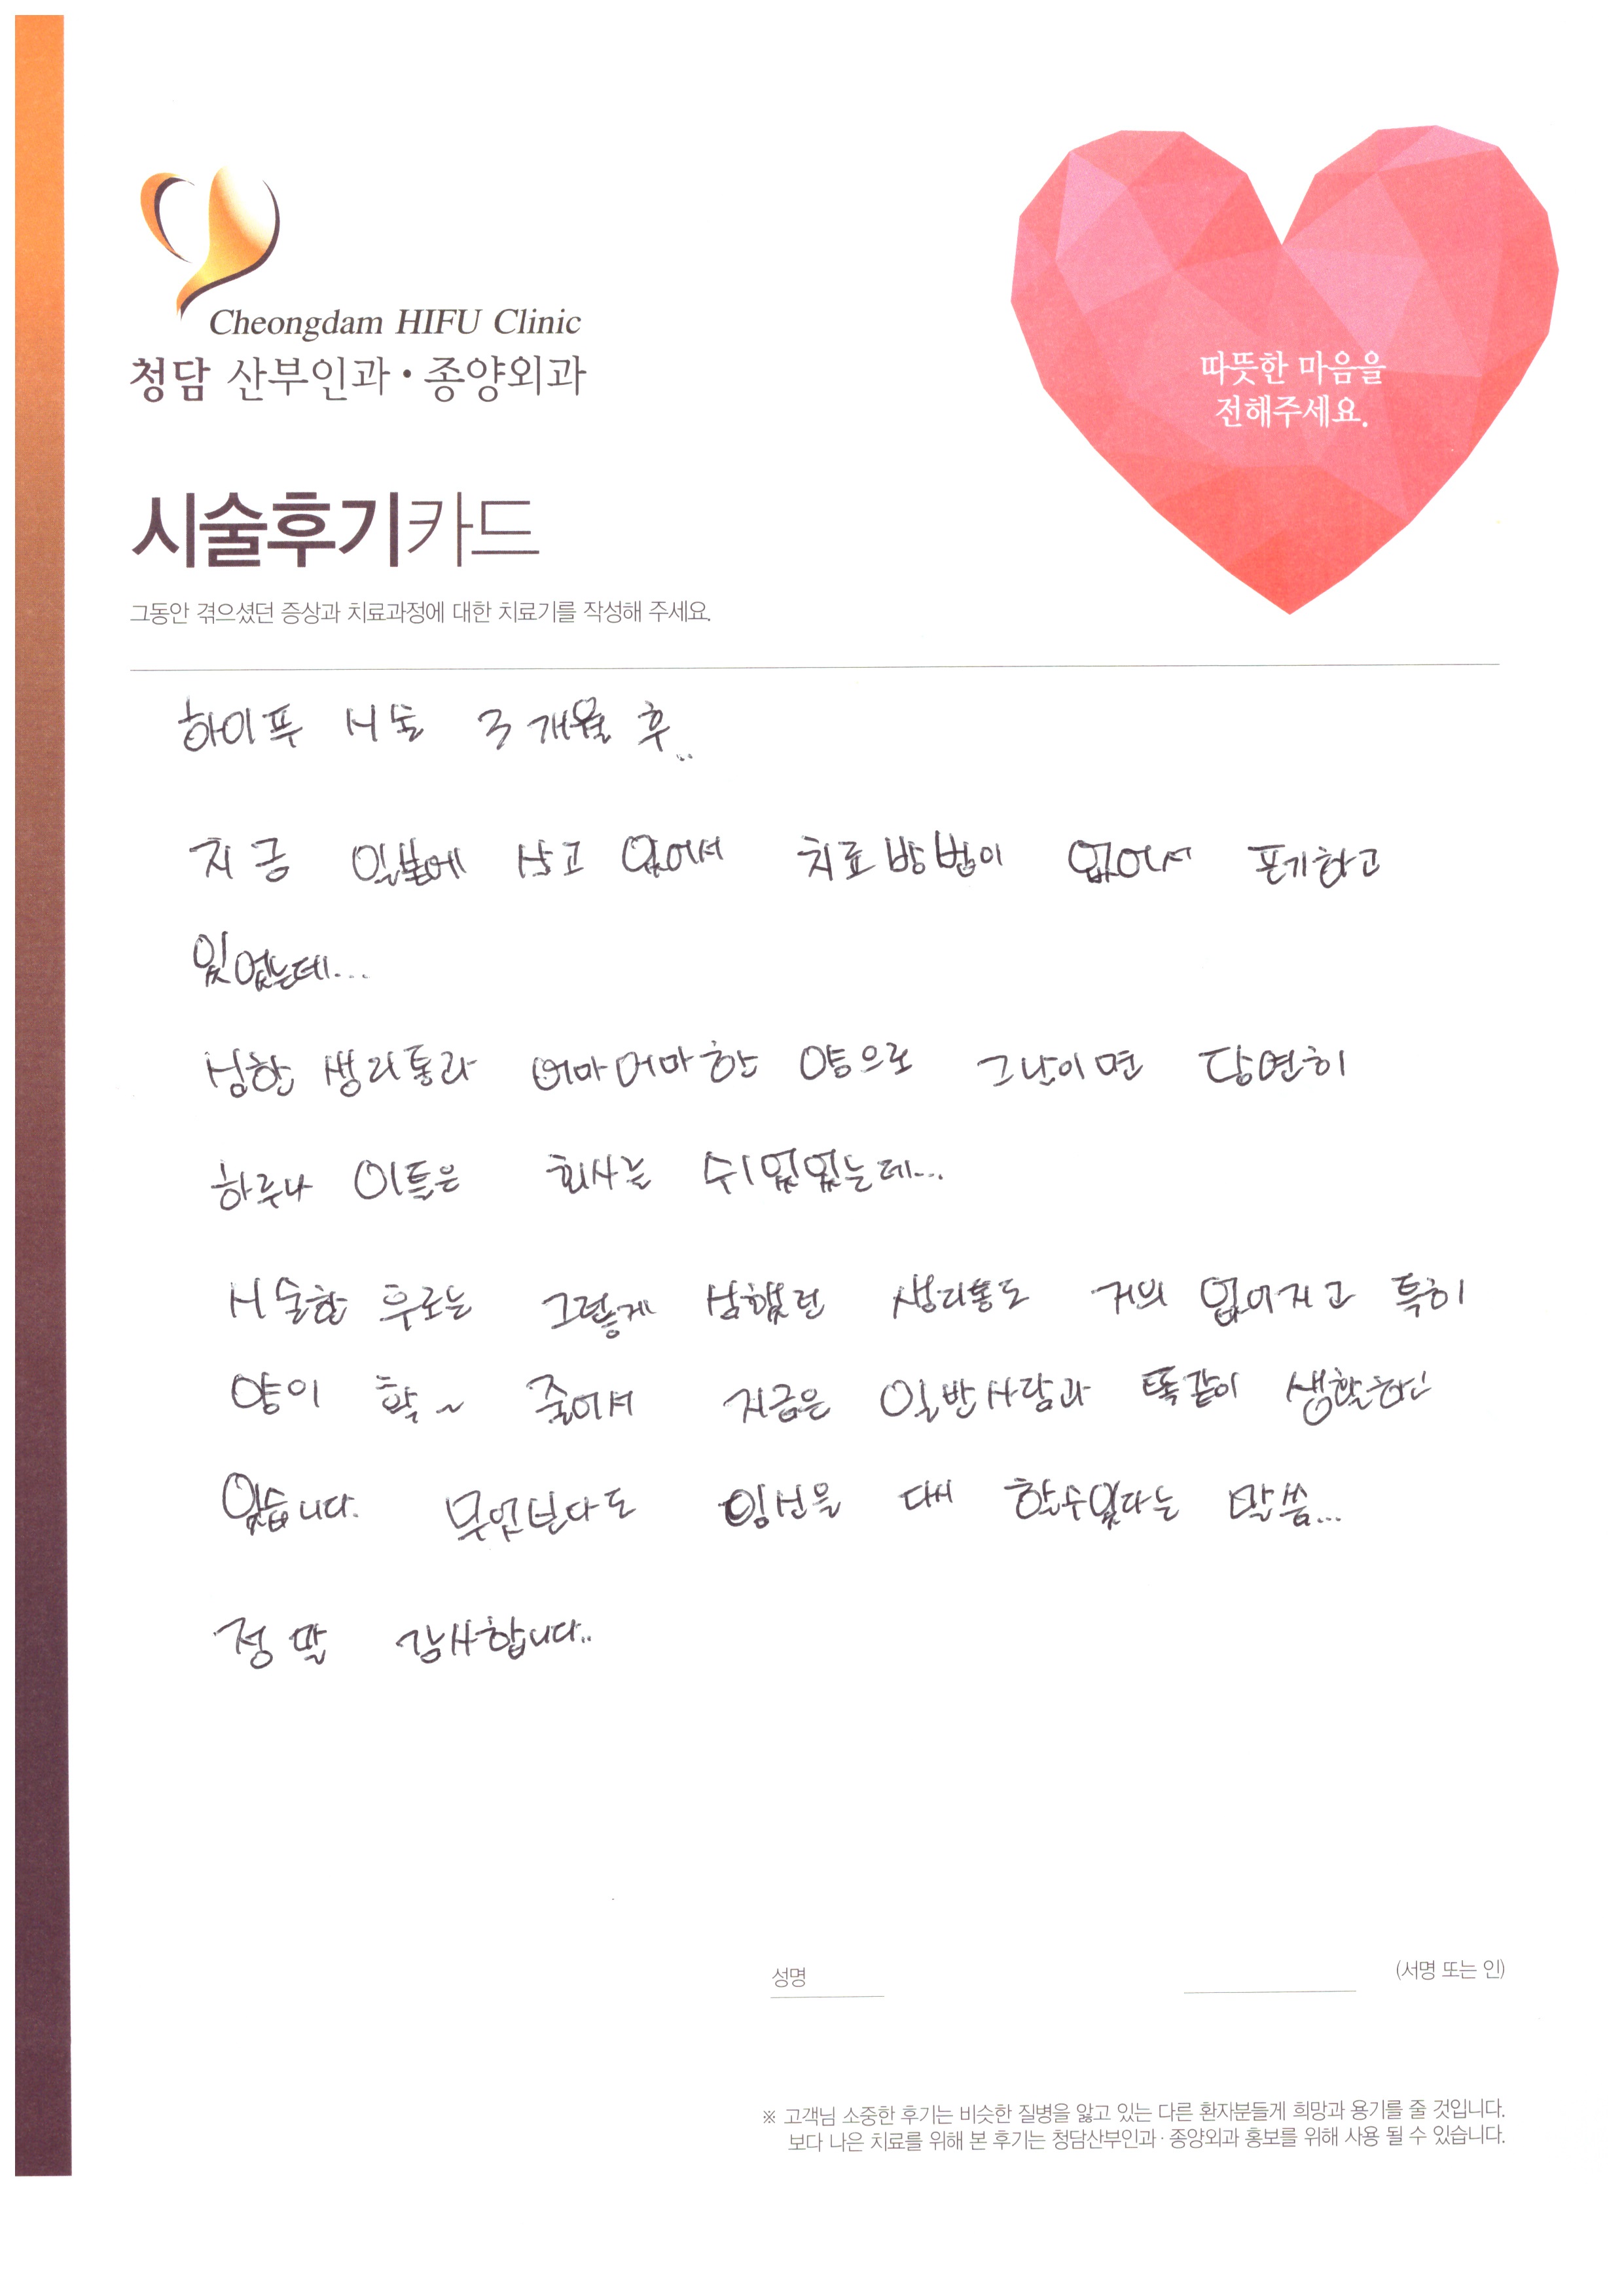 Cheongdam HIFU Clinic
청담 산부인과·종양외과
따뜻한 마음을
전해주세요.
시술후기카드
그동안 겪으셨던 증상과 치료과정에 대한 치료기를 작성해 주세요.
하이푸 시술 3개월 후..
지금 일본에 살고 있어서 치료방법이 없어서 포기하고
있었는데...
심한 생리통과 어마어마한 양으로 그날이면 당연히
하루나 이틀은 회사를 쉬었었는데...
시술한 후로는 그렇게 심했던 생리통도 거의 없어지고 특히
양이 확~ 줄어서 지금은 일반사람과 똑같이 생활하고
있습니다. 무엇보다도 임신을 다시 할수있다는 말씀...
정말 감사합니다..
성명
(서명 또는 인)
※ 고객님 소중한 후기는 비슷한 질병을 앓고 있는 다른 환자분들게 희망과 용기를 줄 것입니다.
보다 나은 치료를 위해 본 후기는 청담산부인과·종양외과 홍보를 위해 사용 될 수 있습니다.